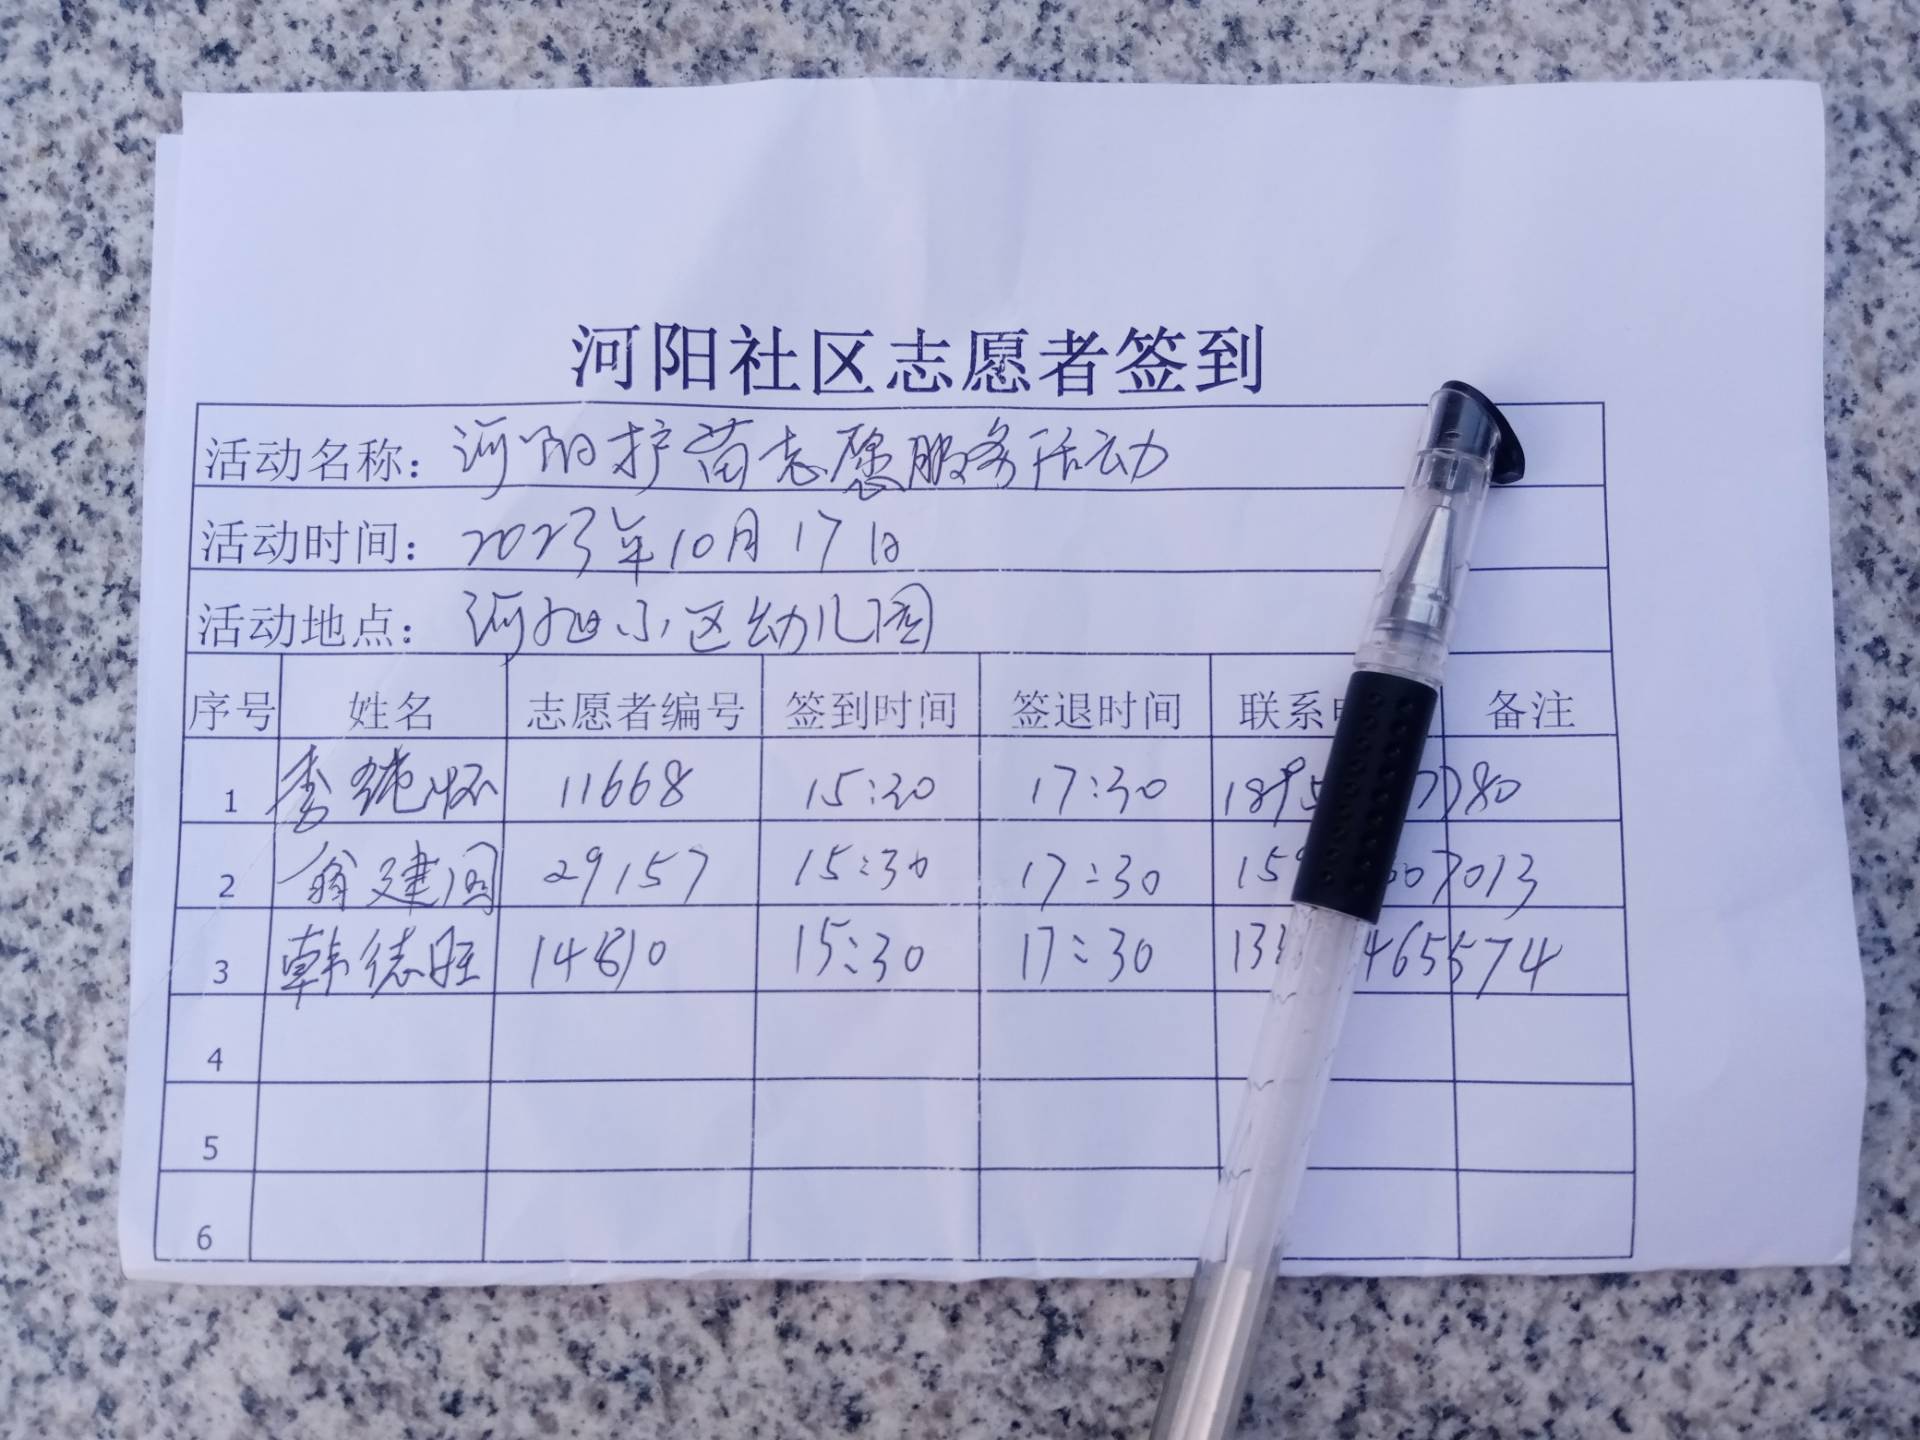 河阳社区志愿者签到
活动名称：河阳护苗志愿服务活动
活动时间：2023年10月17日
活动地点：河旭小区幼儿园
序号 姓名 志愿者编号 签到时间 签退时间 联系 备注
1 李 怀 11668 15:30 17:30 1895 7780
2 翁建国 29157 15:30 17:30 15 07013
3 韩德旺 14810 15:30 17:30 13 465574
4
5
6